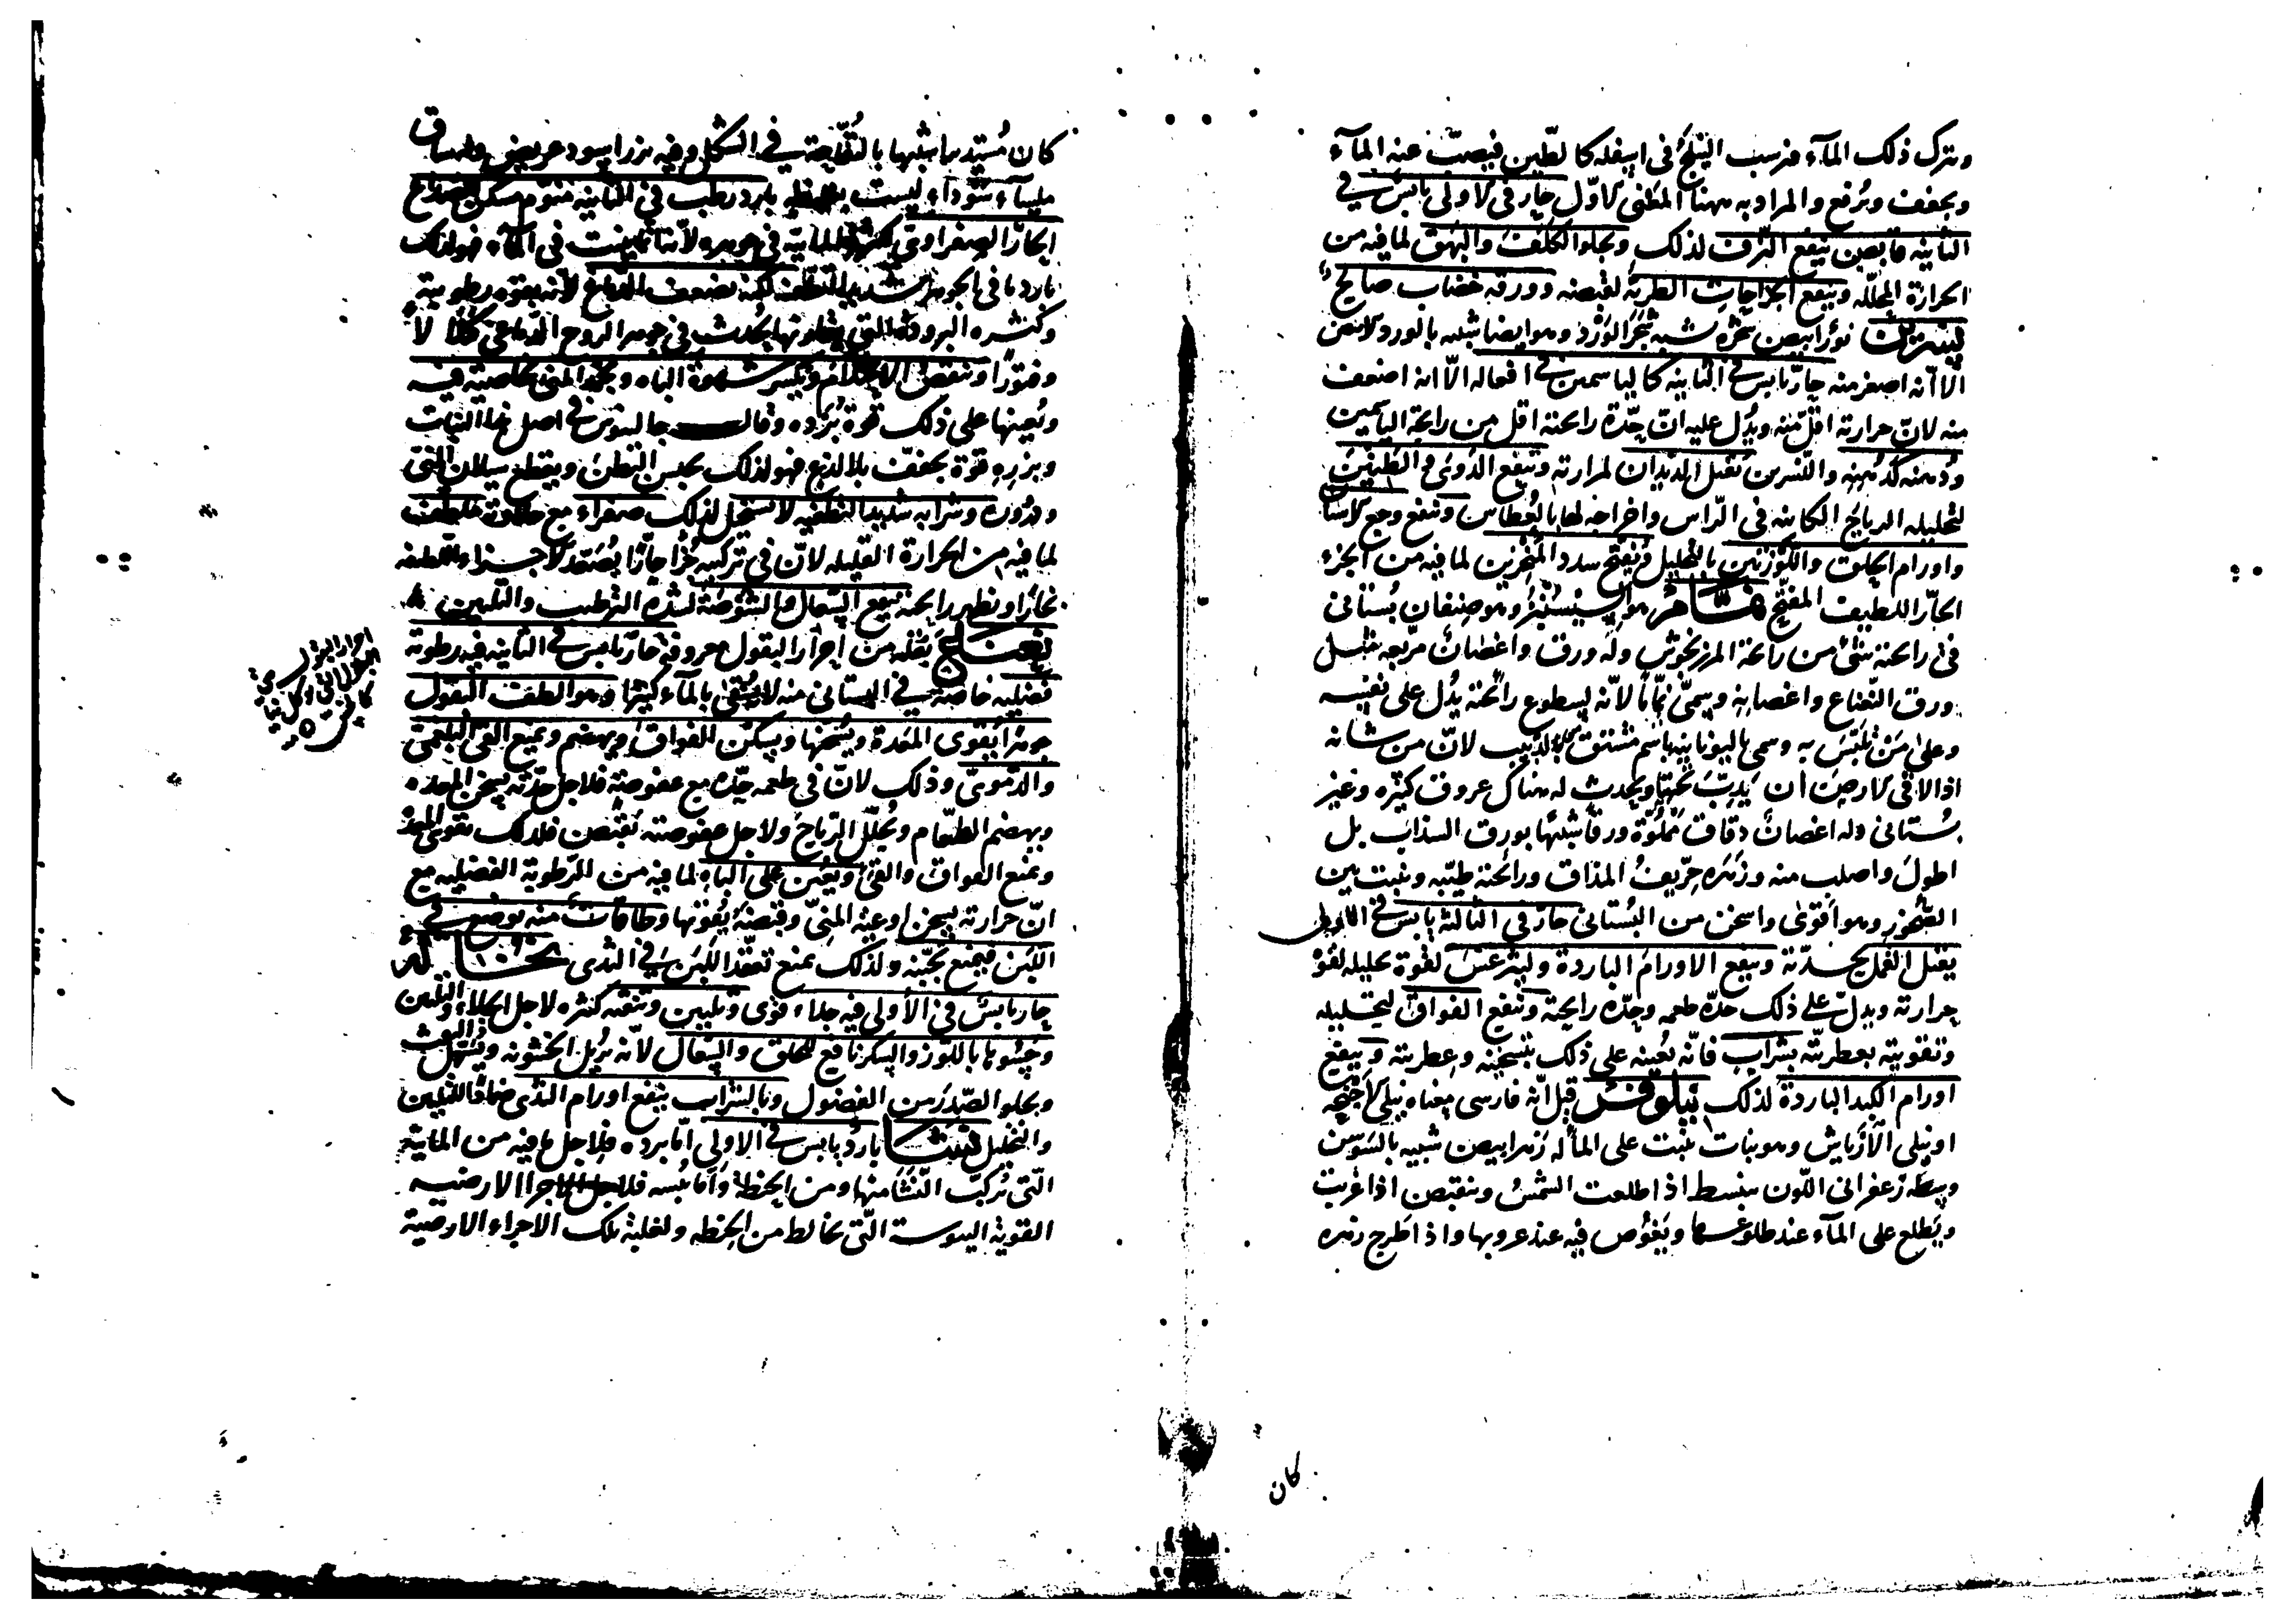 ويترك ذلك الماء فيرسب النيلج فى اسفله كالطين فيصب عنه الماء
ويجفف ويرفع والمراد به ههنا المعنى الاول حار فى الاولى يابس في
الثانيه قابض ينفع النزف لذلك ويجلو الكلف والبهق لما فيه من
الحرارة المحلله وينفع الجراحات الطريه لقبضه وورقه خضاب صالح
نسرين نور ابيض شجره شبيه شجر الورد وهو ايضا شبيه بالورد الابيض
الا انه اصغر منه حار يابس في الثانيه كالياسمين في افعاله الا انه اضعف
منه لان حرارته اقل منه ويدل عليه ان حدة رائحته اقل من رايحة الياسمين
ودهنه كدهنه والنسرين يقتل الديدان لمرارته وينفع الدوى والطنين
لتحليله الرياح الكائنه فى الراس واخراجه لها بالعطاس وينفع وجع الاسنان
واورام الحلق واللوزتين بالتحليل ويفتح سدد المنخرين لما فيه من الجزء
الحار اللطيف المفتح نمام هو السيسنبر وهو صنفان بستانى
فى رائحته شئ من رائحة المرزنجوش وله ورق واغصان مربعه مثل
ورق النعناع واغصانه ويسمى نماما لانه لسطوع رائحته يدل على نفسه
وعلى من تلبس به وسمى باليونانيه باسم مشتق من الدبيب لان من شانه
اذا لاقى الارض ان يدب تحتها ويحدث له هناك عروق كثيره وغير
بستانى وله اغصان دقاق مملوة ورقا شبيها بورق السذاب بل
اطول واصلب منه وزهره حريف المذاق ورائحته طيبه وينبت بين
الصخور وهو اقوى واسخن من البستانى حار فى الثالثة يابس في الاولى
يقتل القمل بحدته وينفع الاورام الباردة وليثرغس لقوة تحليله لقوة
حرارته ويدل على ذلك حدة طعمه وحدة رايحته وينفع الفواق لتحليله
وتقويته بعطريته بشراب فانه يعينه على ذلك بتسخينه وعطريته وينفع
اورام الكبد الباردة لذلك نيلوفر قيل انه فارسى معناه نيلى الاجنحه
او نيلى الارياش وهو نبات ينبت على الماء له زهر ابيض شبيه بالسوسن
وسطه زعفرانى اللون ينبسط اذا طلعت الشمس وينقبض اذا غربت
ويطلع على الماء عند طلوعها ويغوص فيه عند غروبها واذا طرح زهره
كان
كان مستديرا شبيها بالتفاحة في الشكل وفيه بزر اسود عريض وله ساق
ملساء سوداء ليست بغليظه بارد رطب فى الثانيه منوم مسكن للصداع
الحار الصفراوى لكثرة المائيه فى جوهره لانه نابت فى الماء فهو لذلك
بارد مافى الجوهر شديد التطفيه لكنه يضعف الدماغ لانه بقوة رطوبته
وكثره البرودة التى يقاربها يحدث فى جوهر الروح الدماغى كلالا
وفتورا وينقص الاحتلام ويكسر شهوة الباه ويجمد المنى بخاصية فيه
وتعينها على ذلك قوة برده وقال جالينوس في اصل هذا النبات
وبزره قوة يجفف بلا لذع فهو لذلك يحبس البطن ويقطع سيلان المنى
ودروره وشرابه شديد التطفيه لا يستحيل لذلك صفراء مع حلاوته ملطف
لما فيه من الحرارة القليله لان فى تركيبه جزءا حارا يصعد الاجزاء اللطيفه
بخارا ويظهر رايحته ينفع السعال والشوصة لشدة الترطيب والتليين
نعناع بقله من احرار البقول معروفة حار يابس في الثانيه فيه رطوبة
فضليه خاصة في البستانى منه لانه يسقى بالماء كثيرا وهو الطف البقول
جوهرا يقوى المعدة ويسخنها ويسكن الفواق ويهضم ويمنع القى البلغمى
والدموى وذلك لان فى طعمه حدة مع عفوصة فلاجل حدته يسخن المعده
ويهضم الطعام ويحلل الرياح ولاجل عفوصته يقبض فلذلك يقوى المعدة
ويمنع الفواق والقئ ويعين على الباه لما فيه من الرطوبة الفضليه مع
ان حرارته يسخن اوعية المنى وقبضه يقويها وطاقات منه يوضع في
اللبن فيمنع تجبنه ولذلك يمنع تعقد اللبن في الثدى نخاله
حار يابس فى الاولى فيه جلاء قوى وتليين وتنقيه كثيره لاجل الجلاء والتليين
وحسوها باللوز والسكر نافع للحلق والسعال لانه يزيل الخشونه ويسهل النفث
ويجلو الصدر من الفضول وبالشراب ينفع اورام الثدى ضمادا للتليين
والتحليل نشا بارد يابس في الاولى اما برده فلاجل ما فيه من المائية
التى تركب النشا منها ومن الحنطة واما يبسه فلاجل الاجزا الارضيه
القوية اليبوسة التى تخالط من الحنطه ولغلبة تلك الاجزاء الارضية